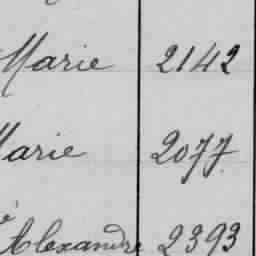 Marie 2142
Marie 2077
Alexandre 2393